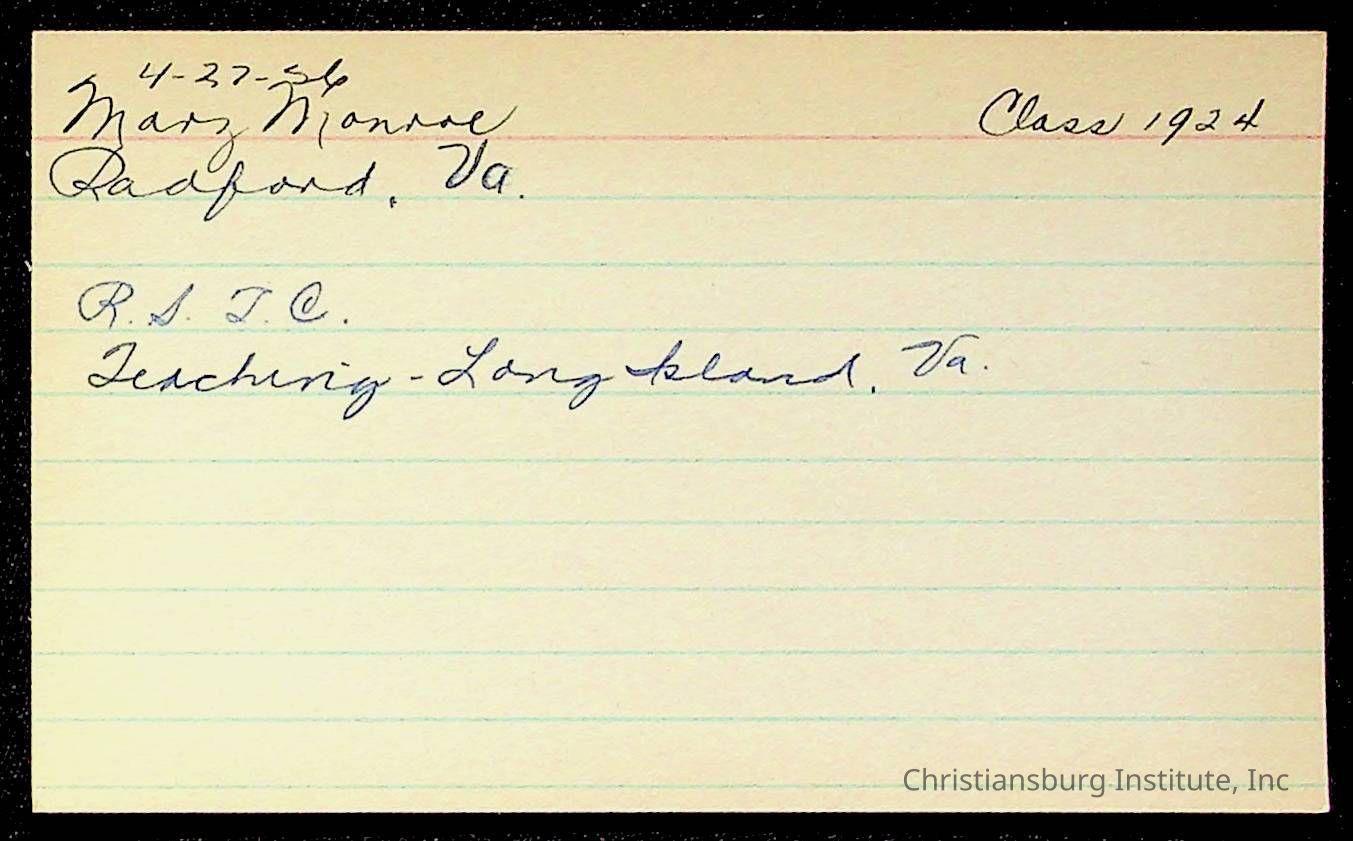 4-27-56
Mary Monroe Class 1924
Radford, Va.
R. S. T. C.
Teaching - Long Island, Va.
Christiansburg Institute, Inc